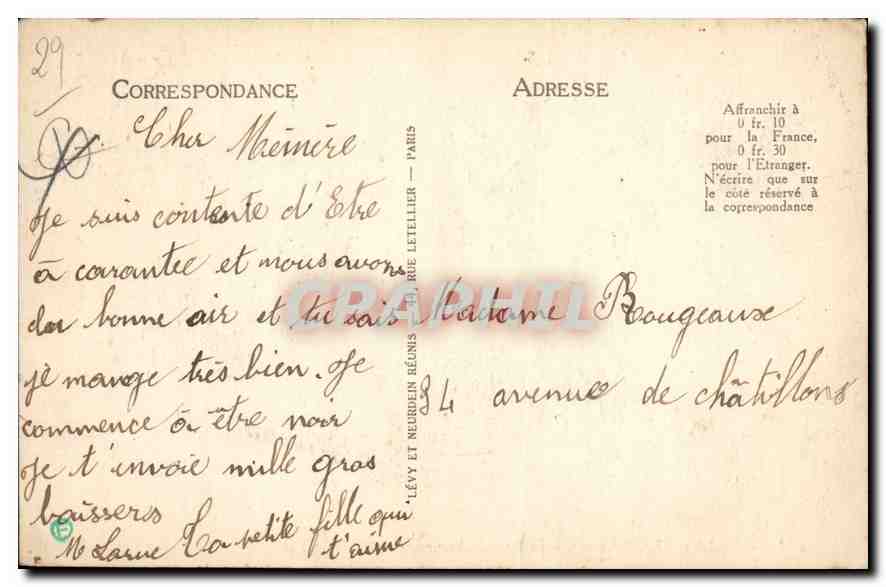 29
CORRESPONDANCE
Cher Mémère
Je suis contente d'Etre
à carantec et nous avons
du bonne air et tu sais
je mange très bien. Je
commence à être noir
Je t'envoie mille gros
baissers
Ta petite fille qui
t'aime
M Larue
LÉVY ET NEURDEIN RÉUNIS 44, RUE LETELLIER — PARIS
ADRESSE
Affranchir à
0 fr. 10
pour la France,
0 fr. 30
pour l'Etranger.
N'écrire que sur
le côté réservé à
la correspondance
Madame Rougeaux
34 avenue de châtillons
CPAPHIL